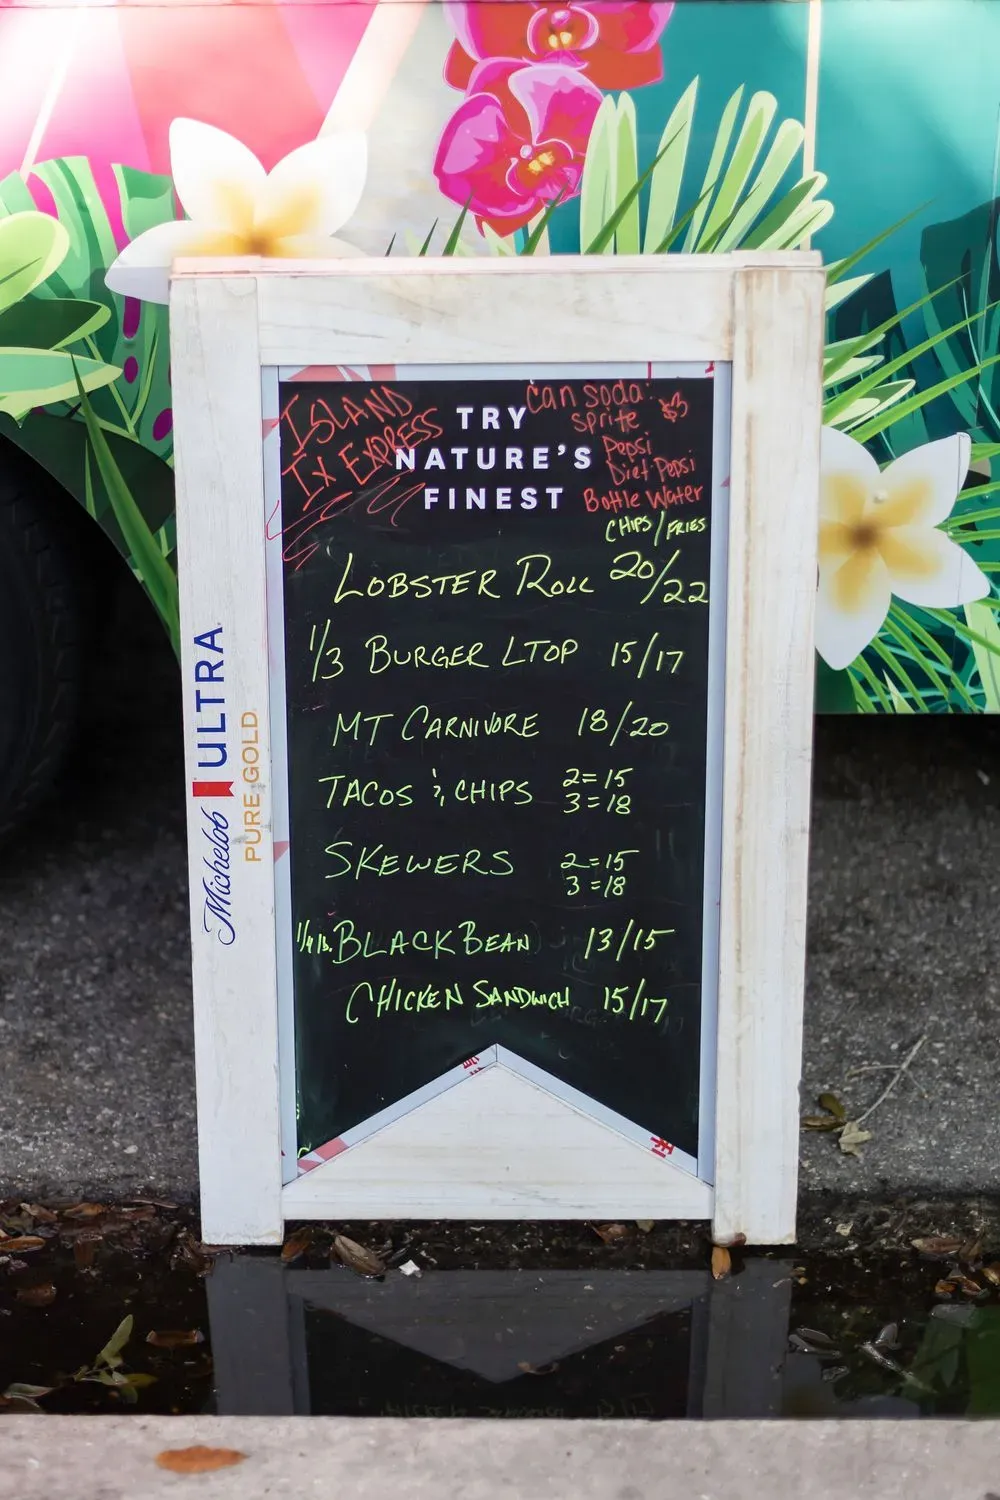 ISLAND
IX EXPRESS
TRY
NATURE'S
FINEST
Can soda:
sprite
Pepsi
Diet Pepsi
Bottle Water
CHIPS/FRIES
LOBSTER ROLL 20/22
1/3 BURGER LTOP 15/17
MT CARNIVORE 18/20
TACOS & CHIPS 2=15
3=18
SKEWERS 2=15
3=18
1/4 lb. BLACK BEAN 13/15
CHICKEN SANDWICH 15/17
Michelob ULTRA
PURE GOLD